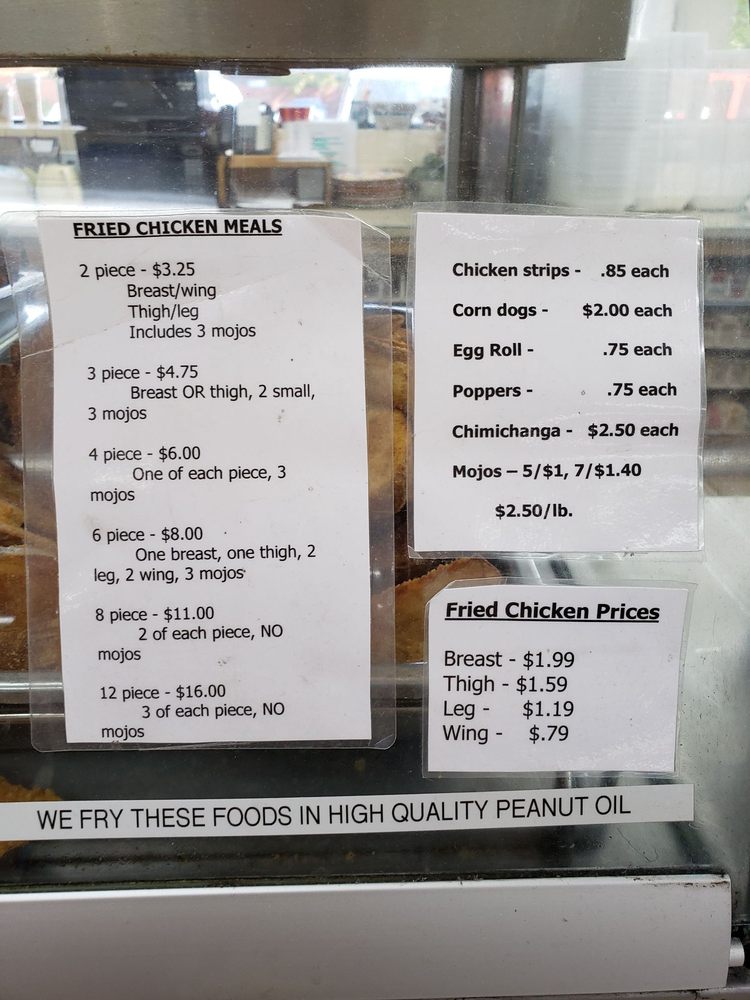 FRIED CHICKEN MEALS
2 piece - $3.25
Breast/wing
Thigh/leg
Includes 3 mojos
3 piece - $4.75
Breast OR thigh, 2 small,
3 mojos
4 piece - $6.00
One of each piece, 3
mojos
6 piece - $8.00
One breast, one thigh, 2
leg, 2 wing, 3 mojos
8 piece - $11.00
2 of each piece, NO
mojos
12 piece - $16.00
3 of each piece, NO
mojos
Chicken strips - .85 each
Corn dogs - $2.00 each
Egg Roll - .75 each
Poppers - .75 each
Chimichanga - $2.50 each
Mojos – 5/$1, 7/$1.40
$2.50/lb.
Fried Chicken Prices
Breast - $1.99
Thigh - $1.59
Leg - $1.19
Wing - $.79
WE FRY THESE FOODS IN HIGH QUALITY PEANUT OIL